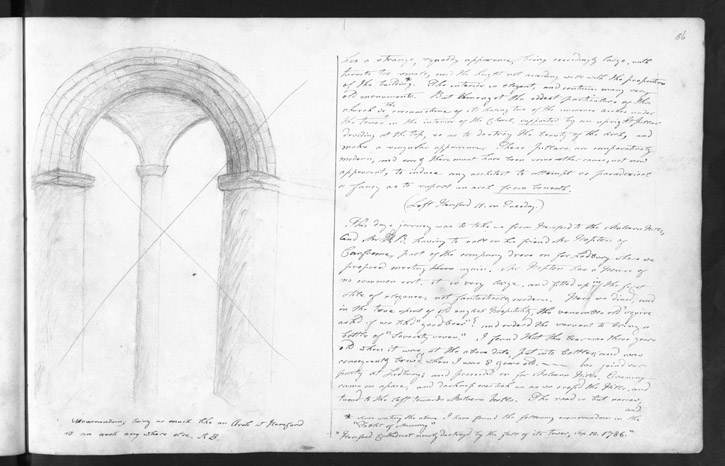 86
has a strange, squatty appearance, being exceedingly large, with
and the height not according well with the proportions
of the building.* The interior is elegant, and contains many very
old monuments. But amongst the oddest particulars of this
church is the circumstance of its having two of the immense arches under
the tower in the interior of the Church, supported by an upright pillar
dividing at the top, so as to destroy the beauty of the Arch, and
make a singular appearance. These pillars are comparatively
modern, and surely there must have been some other cause, not now
apparent, to induce any architect to attempt so paradoxical
a fancy as to support an arch from beneath.
(Left Hereford 11. on Tuesday.)
This day's journey was to take us from Hereford to the Malvern Hills,
and Mr. B. having to call on his friend Mr. Hopton of
Canfrome, part of the company drove on for Ledbury where we
proposed meeting them again. Mr. Hopton has a House of
no common sort, it is very large, and fitted up in the first
style of elegance, not fantastically modern. Here we dined, and
in the true spirit of old english Hospitality, the venerable old squire
asked if we lik'd "good beer"? and order'd the servant to bring a
bottle of "Seventy seven." I found that the beer was three years
old when it was, at the above date, put into bottles, and was
consequently brew'd when I was 8 years old. we joined our
party at Ledbury and proceeded on for Malvern Wells, Evening
came on apace, and darkness overtook us as we cross'd the Hills, and
turn'd to the left towards Malvern Wells. The road is that narrow,
and
* since writing the above I have found the following memorandum in the
"Tablet of Memory"
"Hereford Cathedral nearly destroyed by the fall of its tower, Ap. 10. 1786."
Memorandum, being as much like an Arch at Hereford
as an arch any where else. R.B.